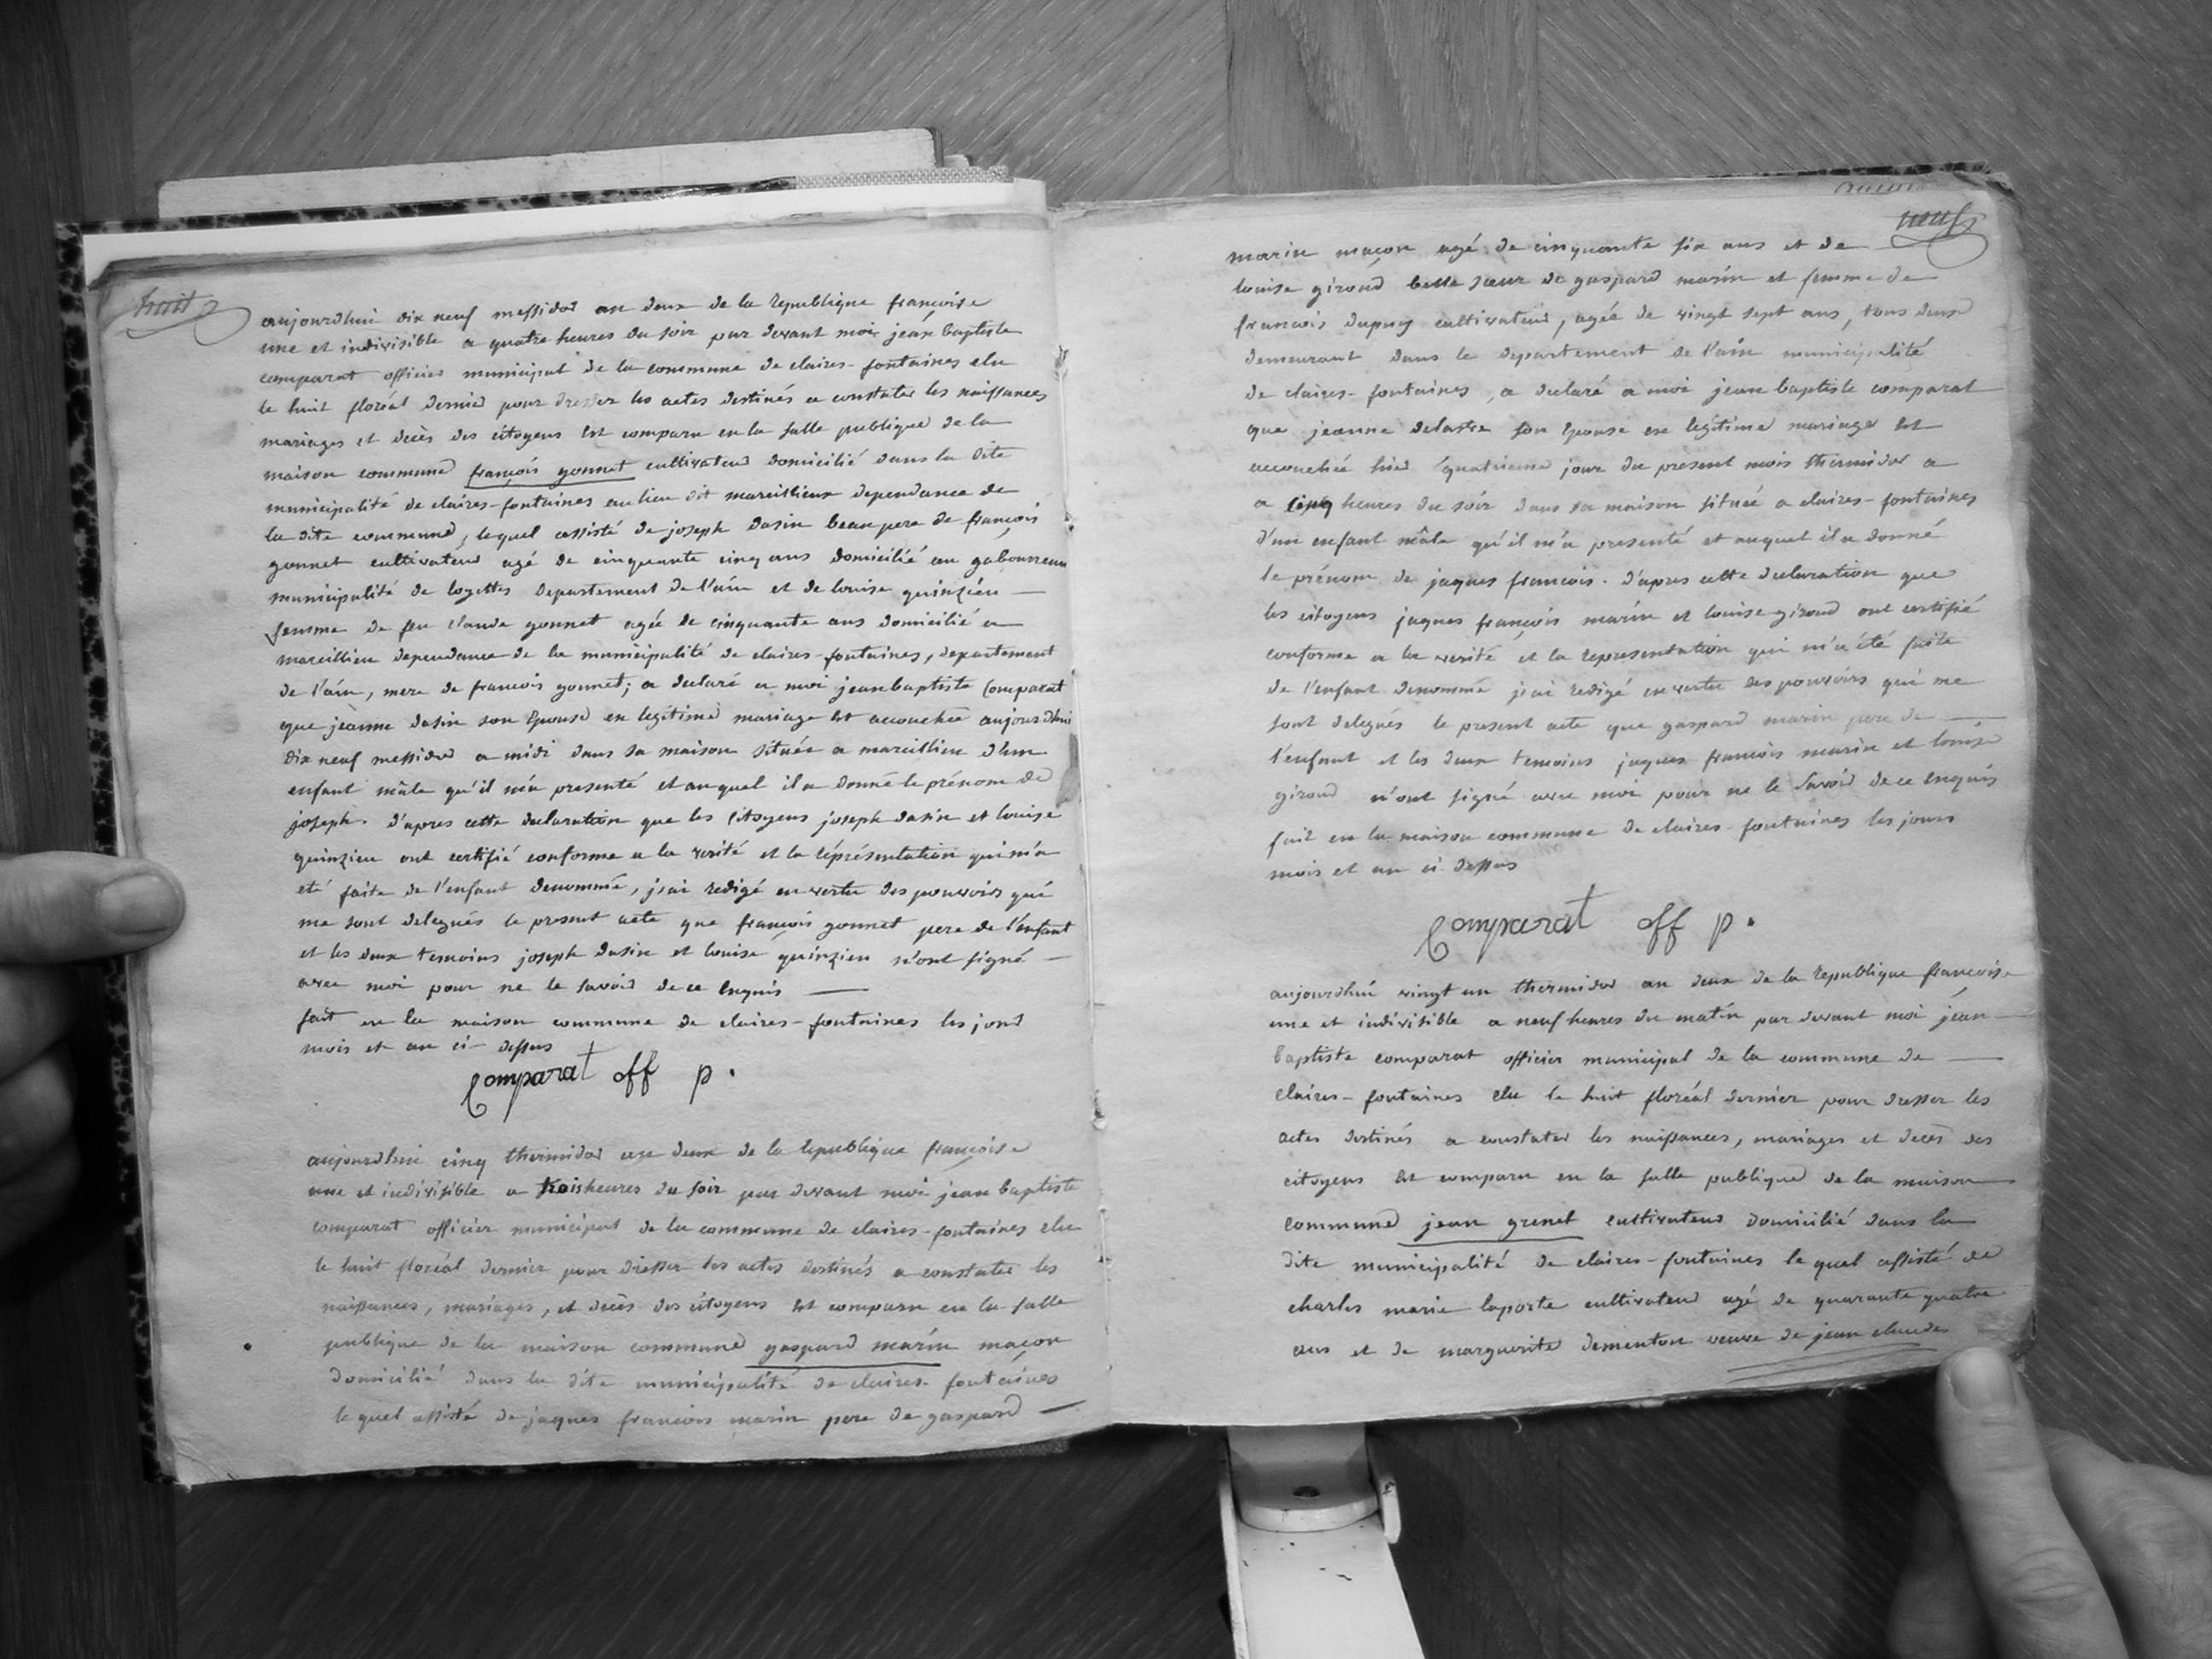 huit
aujourdhui dix neuf messidor an deux de la republique françoise
une et indivisible a quatre heures du soir par devant moi jean baptiste
comparat officier municipal de la commune de claires-fontaines elu
le huit floréal dernier pour dresser les actes destinés a constater les naissances
mariages et decès des citoyens est comparu en la salle publique de la
maison commune françois gonnet cultivateur domicilié dans la dite
municipalité de claires-fontaines au lieu dit marcillieux dependance de
la dite commune, lequel assisté de joseph dasin beau pere de françois
gonnet cultivateur agé de cinquante cinq ans domicilié au
municipalité de loyettes departement de l'ain et de louise quinzieu
femme de feu claude gonnet agée de cinquante ans domicilié a
marcillieu dependance de la municipalité de claires-fontaines, departement
de l'ain, mere de francois gonnet; a declaré a moi jean baptiste Comparat
que jeanne dasin son epouse en legitime mariage est accouchée aujourdhui
dix neuf messidor a midi dans sa maison située a marcillieu d'un
enfant mâle qu'il m'a presenté et auquel il a donné le prénom de
joseph. d'apres cette declaration que les citoyens joseph dasin et louise
quinzieu ont certifié conforme a la verité et la représentation qui m'a
eté faite de l'enfant denommé, j'ai redigé en vertu des pouvoirs qui
me sont delegués le present acte que françois gonnet pere de l'enfant
et les deux temoins joseph dasin et louise quinzieu n'ont signé
avec moi pour ne le savoir de ce enquis
fait en la maison commune de claires-fontaines les jour
mois et an ci-dessus
Comparat off p.
aujourdhui cinq thermidor an deux de la republique françoise
une et indivisible a trois heures du soir par devant moi jean baptiste
comparat officier municipal de la commune de claires-fontaines elu
le huit floréal dernier pour dresser les actes destinés a constater les
naissances, mariages, et decès des citoyens est comparu en la salle
publique de la maison commune gaspard marin maçon
domicilié dans la dite municipalité de claires-fontaines
le quel assisté de jaques francois marin pere de gaspard
neuf
marin maçon agé de cinquante six ans et de
louise giroud belle sœur de gaspard marin et femme de
francois dupuy cultivateur, agée de vingt sept ans, tous deux
demeurant dans le departement de l'ain municipalité
de claires-fontaines, a declaré a moi jean baptiste comparat
que jeanne delastre son epouse en legitime mariage est
accouchée hier quatrieme jour du present mois thermidor a
a cinq heures du soir dans sa maison située a claires-fontaines
d'un enfant mâle qu'il m'a presenté et auquel il a donné
le prénom de jaques francois. d'apres cette declaration que
les citoyens jaques françois marin et louise giroud ont certifié
conforme a la verité et la representation qui m'a été faite
de l'enfant denommé j'ai redigé en vertu des pouvoirs qui me
sont delegués le present acte que gaspard marin pere de
l'enfant et les deux temoins jaques francois marin et louise
giroud n'ont signé avec moi pour ne le savoir de ce enquis
fait en la maison commune de claires-fontaines les jours
mois et an ci dessus
Comparat off p.
aujourdhui vingt un thermidor an deux de la republique françoise
une et indivisible a neuf heures du matin par devant moi jean
baptiste comparat officier municipal de la commune de
claires-fontaines elu le huit floréal dernier pour dresser les
actes destinés a constater les naissances, mariages et decès des
citoyens est comparu en la salle publique de la maison
commune jean grenet cultivateur domicilié dans la
dite municipalité de claires-fontaines le quel assisté de
charles marie laporte cultivateur agé de quarante quatre
ans et de marguerite dementon veuve de jean claude